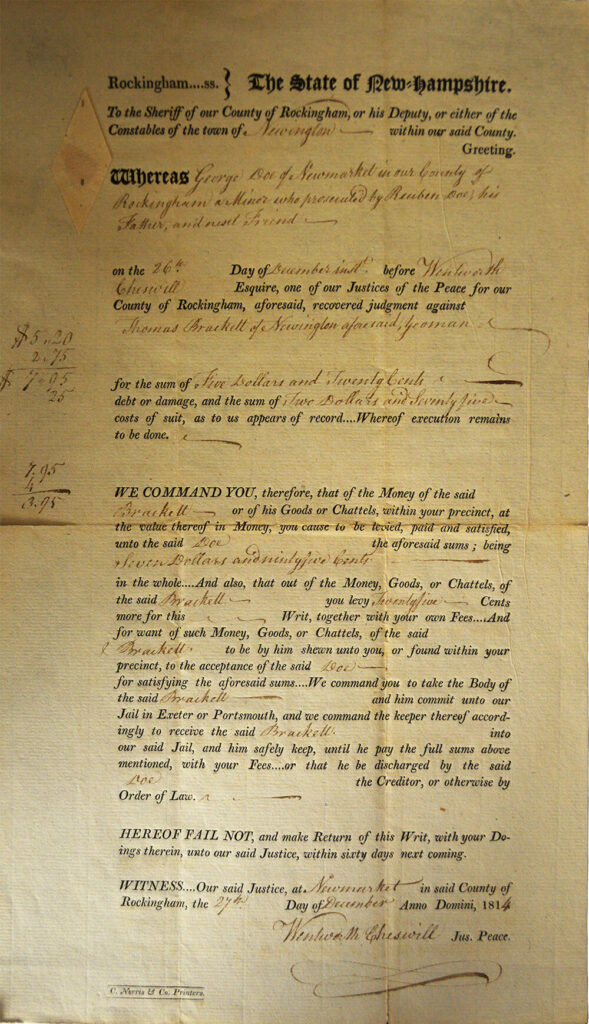 Rockingham....ss. } The State of New-Hampshire.
To the Sheriff of our County of Rockingham, or his Deputy, or either of the
Constables of the town of Newington within our said County.
Greeting.
Whereas George Doe of Newmarket in our County of
Rockingham a Minor who prosecuted by Reuben Doe, his
Father, and next Friend
on the 26th Day of December inst. before Wentworth
Cheswill Esquire, one of our Justices of the Peace for our
County of Rockingham, aforesaid, recovered judgment against
Thomas Brackett of Newington aforesaid, Yeoman
$5.20
2.75
$7.95
25
for the sum of Five Dollars and Twenty Cents
debt or damage, and the sum of Two Dollars and Seventy five
costs of suit, as to us appears of record....Whereof execution remains
to be done.
7.95
4
3.95
WE COMMAND YOU, therefore, that of the Money of the said
Brackett or of his Goods or Chattels, within your precinct, at
the value thereof in Money, you cause to be levied, paid and satisfied,
unto the said Doe the aforesaid sums; being
Seven Dollars and ninty five Cents
in the whole....And also, that out of the Money, Goods, or Chattels, of
the said Brackett you levy Twenty five Cents
more for this Writ, together with your own Fees....And
for want of such Money, Goods, or Chattels, of the said
Brackett to be by him shewn unto you, or found within your
precinct, to the acceptance of the said Doe
for satisfying the aforesaid sums....We command you to take the Body of
the said Brackett and him commit unto our
Jail in Exeter or Portsmouth, and we command the keeper thereof accord-
ingly to receive the said Brackett into
our said Jail, and him safely keep, until he pay the full sums above
mentioned, with your Fees....or that he be discharged by the said
Doe the Creditor, or otherwise by
Order of Law.
HEREOF FAIL NOT, and make Return of this Writ, with your Do-
ings therein, unto our said Justice, within sixty days next coming.
WITNESS....Our said Justice, at Newmarket in said County of
Rockingham, the 27th Day of December Anno Domini, 1814
Wentworth Cheswill Jus. Peace.
C. Norris & Co. Printers.